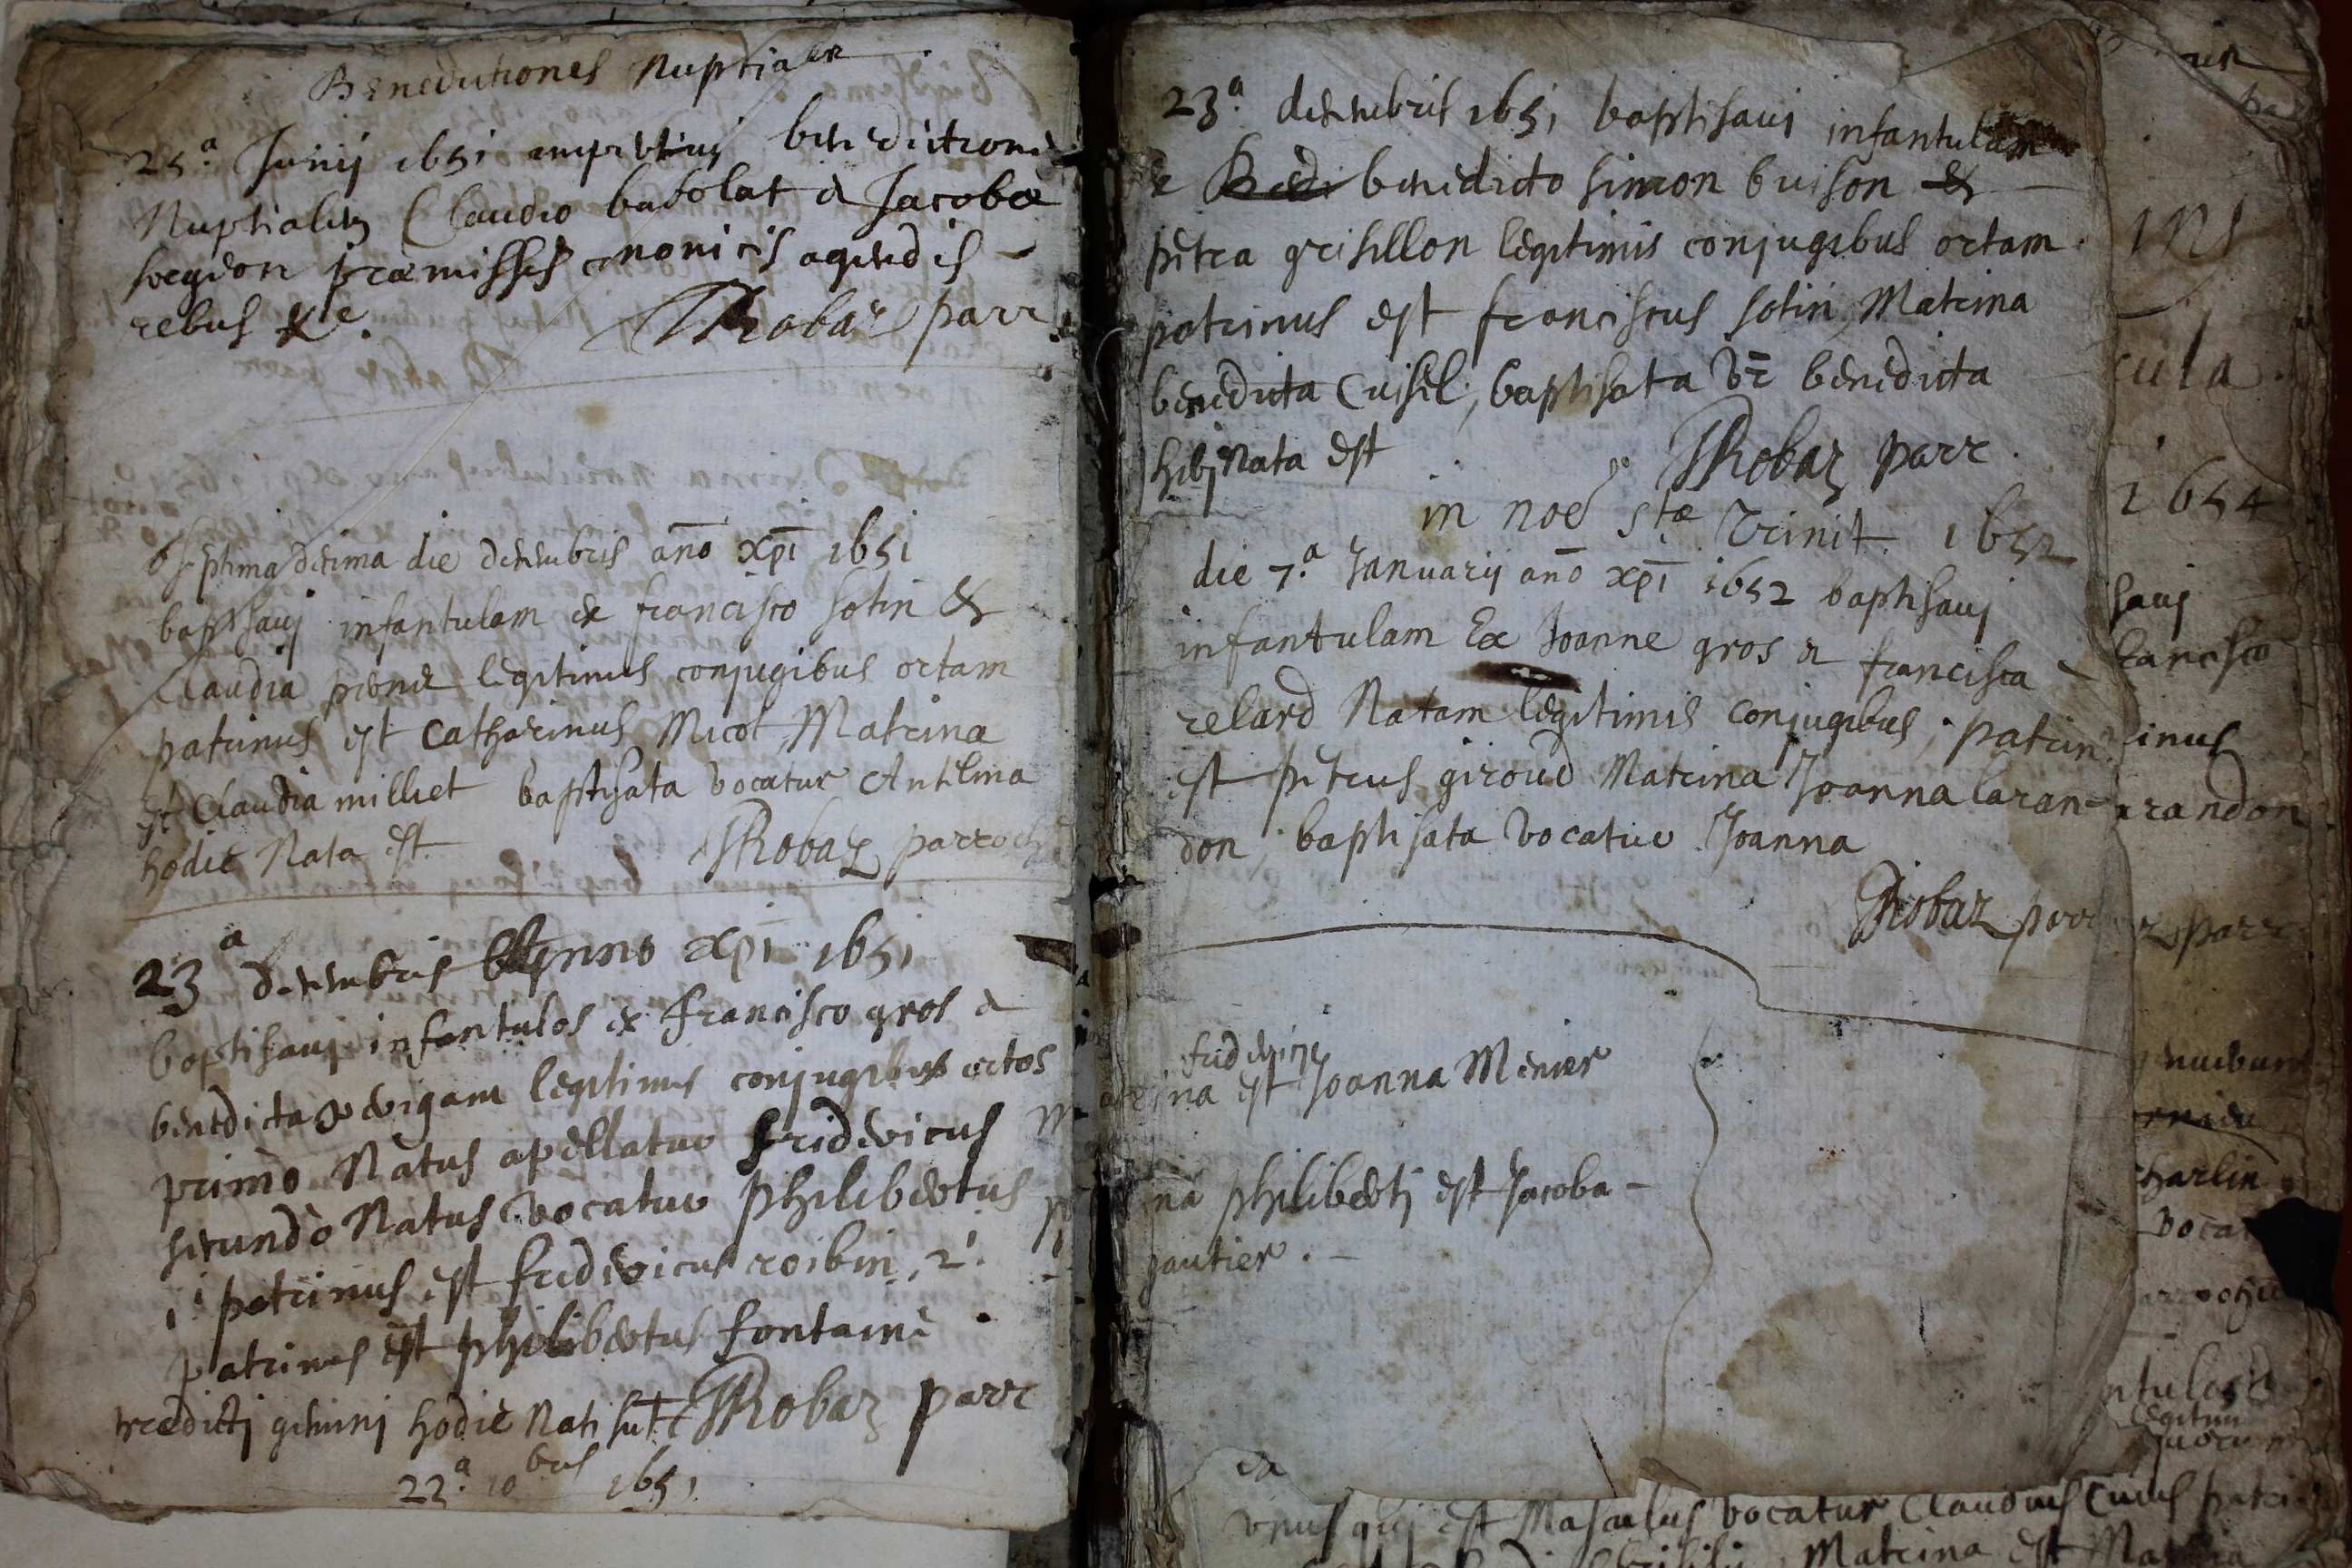 Benedictiones Nuptiales
25.a Junij 1651 impertivi benedictione
Nuptialem Claudio babolat & Jacoba
præmissis canonicis agendis -
rebus &c. Robaz parr
Septima decima die decembris año xpi 1651
baptisavj infantulam ex francisco sotin &
Claudia legitimis conjugibus ortam
patrinus est Catharinus Micol, Matrina
est Claudia milliet baptisata vocatur Antelma
hodie Nata est. Robaz parroch
23a decembris Anno xpi 1651
baptisavj infantulos ex francisco gros &
benedicta legitimis conjugibus ortos
primò Natus apellatur fridericus
secundò Natus vocatur philibertus
1i patrinus est fridericus roibin, 2i
patrinus est philibertus fontaine
prædictj geminj hodie Nati sut Robaz parr
22.a 10bris 1651
23.a decembris 1651 baptisavj infantulam
e benedicto simon buison &
petra grisillon legitimis conjugibus ortam.
patrinus est franciscus sotin, Matrina
benedicta Cuisel, baptisata vr benedicta
hibj Nata est Robaz parr.
in noe stæ Trinit. 1652
die 7.a Januarij año xpi 1652 baptisavj
infantulam Ex Joanne gros & francisca
relard Natam legitimis conjugibus; patrin9
est petrus giroud Matrina Joanna laran=
don; baptisata vocatur Joanna
Robaz parr
friderici
matrina est Joanna Menier
na philibertj est Jacoba -
gautier. -
ins
cula
1654
savj
francisco
inus
rrandon
parr
charlin
voca
ntulos
legitim
vnus quj est Masculus vocatur Claudius Cuius patri
Matrina est